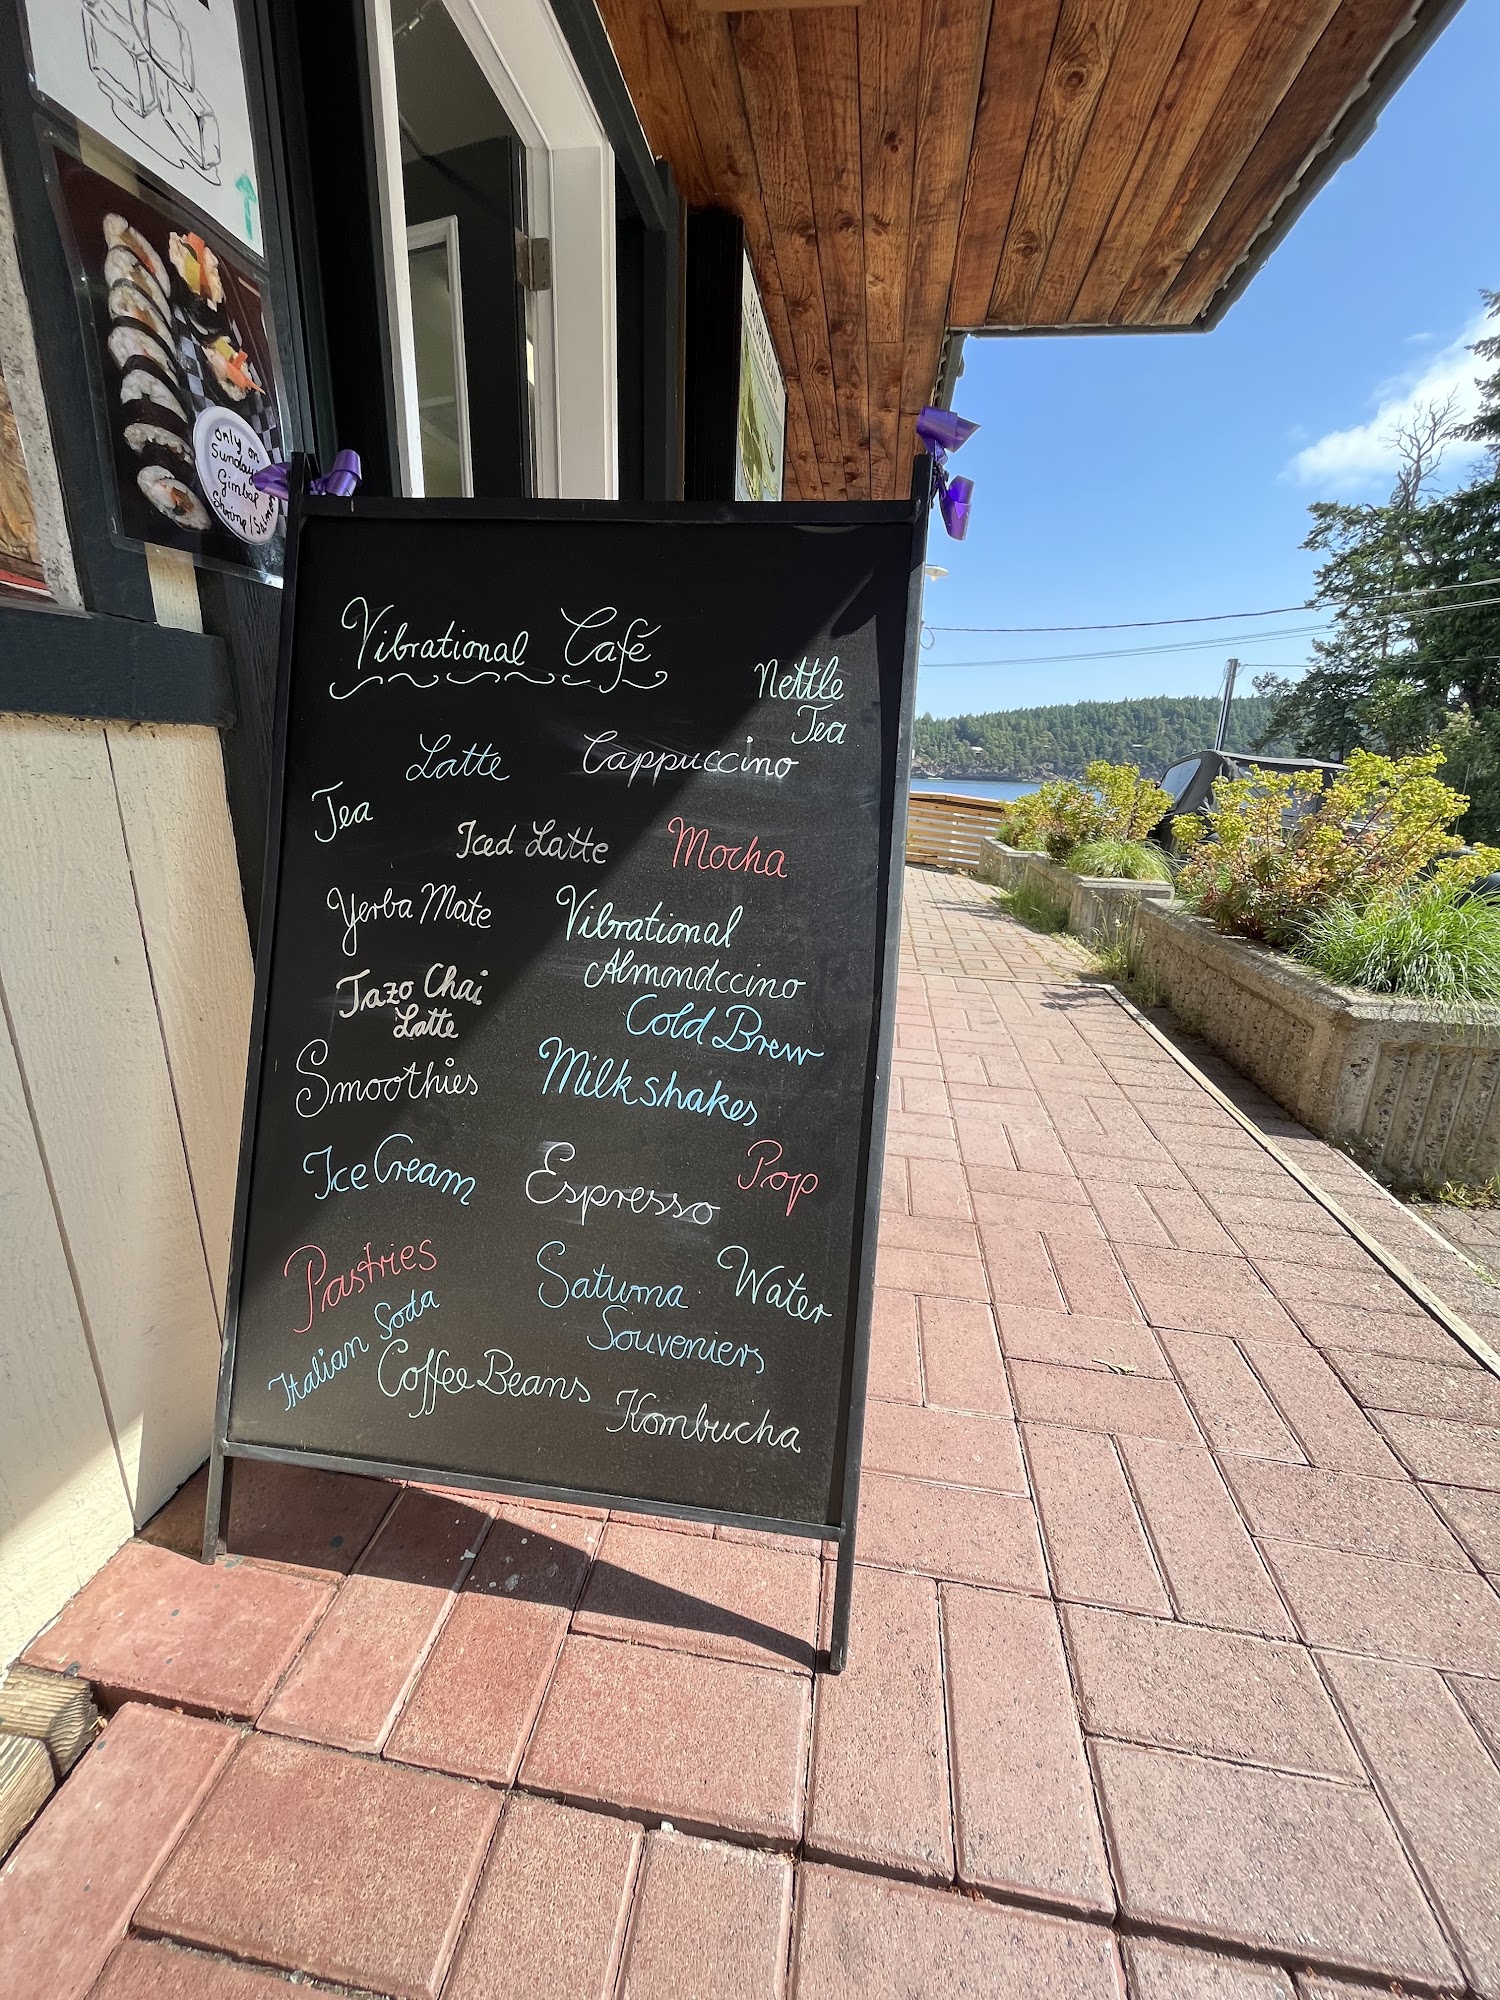 only on
Sunday
Gimbal
Shrimp / Salmon
Vibrational Café
Nettle
Tea
Latte
Cappuccino
Tea
Iced Latte
Mocha
Yerba Mate
Vibrational
Almondccino
Tazo Chai
Latte
Cold Brew
Smoothies
Milkshakes
Ice Cream
Espresso
Pop
Pastries
Saturna
Souveniers
Water
Italian Soda
Coffee Beans
Kombucha